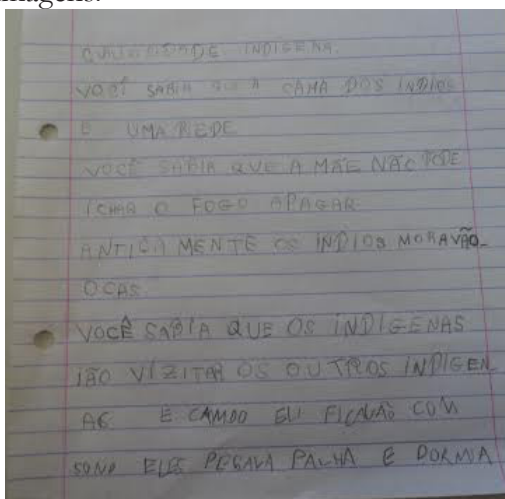 imagens.
INDIGENA.
VOCÊ SABIA QUE A CAMA DOS INDIOS
E UMA REDE
VOCÊ SABIA QUE A MÃE NÃO PODE
ICHAR O FOGO APAGAR
ANTIGAMENTE OS INDIOS MORAVÃO
OCAS
VOCÊ SABIA QUE OS INDIGENAS
IÃO VIZITAR OS OUTROS INDIGEN
AS E CAMDO ELI FICAVÃO COM
SONO ELES PEGAVA PALHA E DORMIA